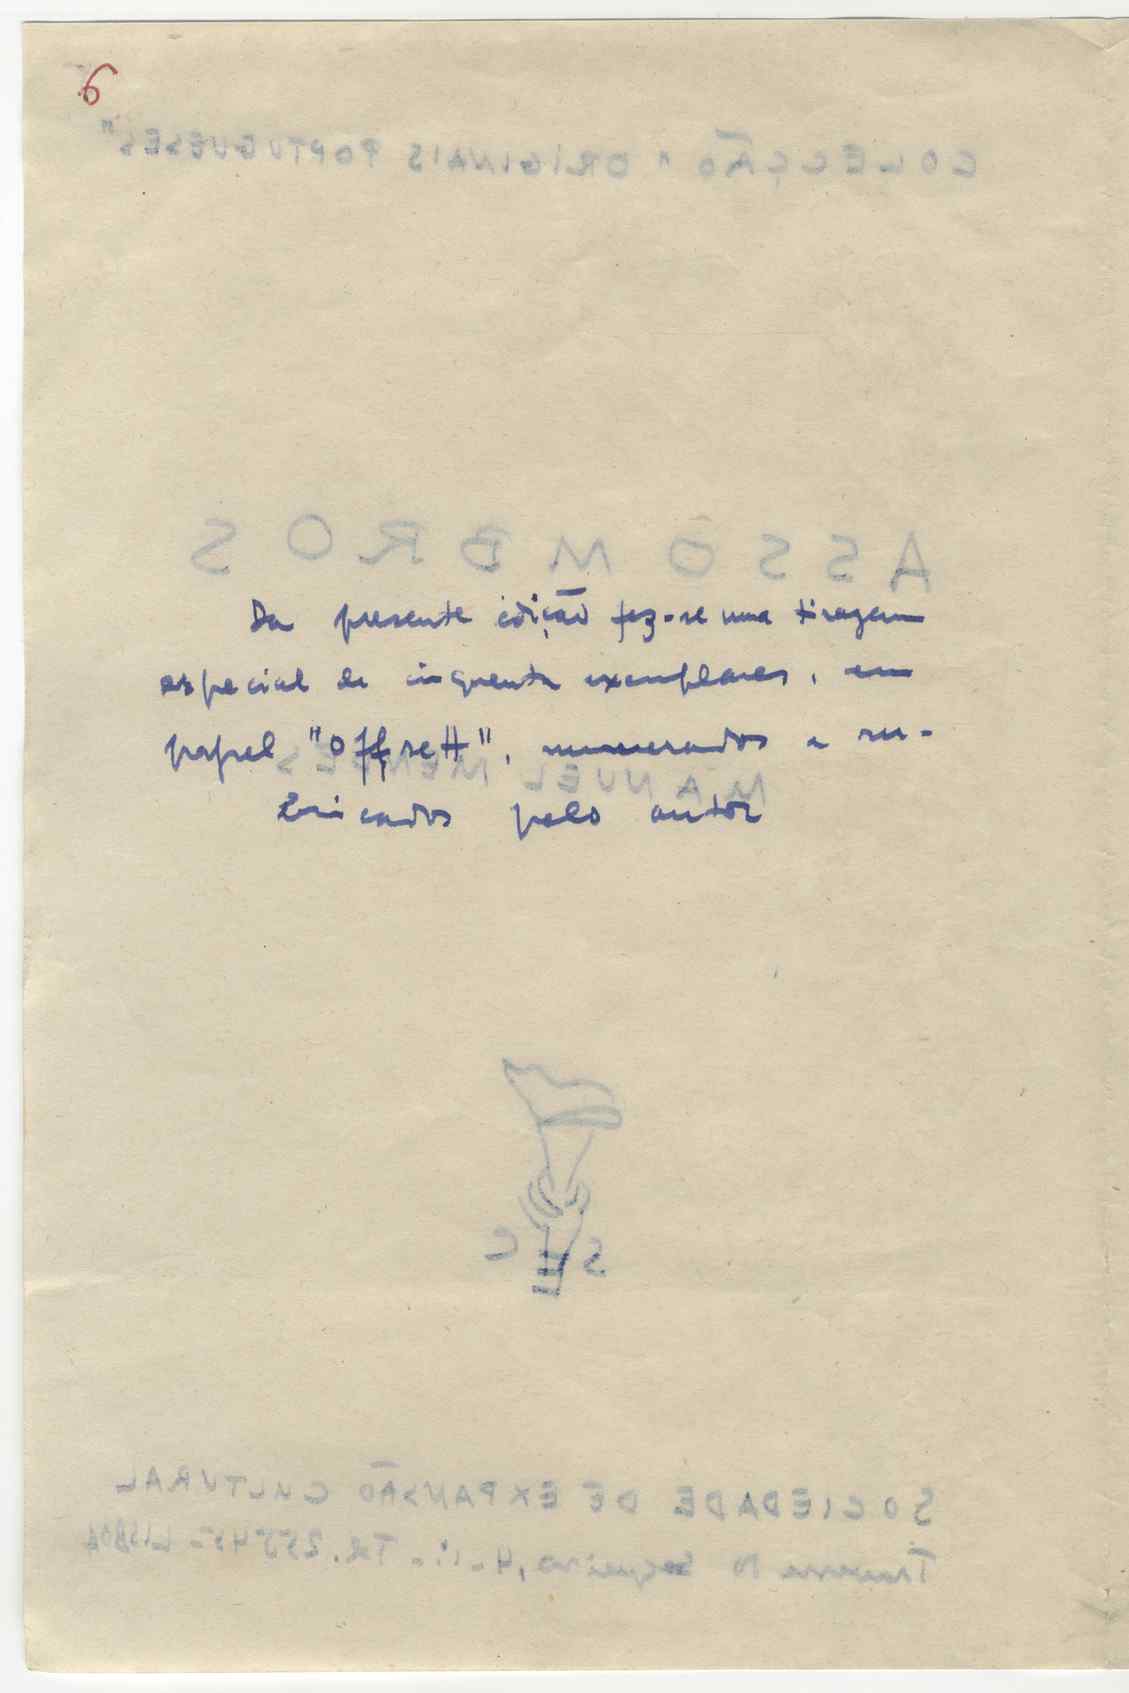 6
COLECÇÃO "ORIGINAIS PORTUGUESES"
ASSOMBROS
Da presente edição fez-se uma tiragem
especial de cinquenta exemplares, em
papel "Offsett", numerados e ru-
MANUEL MENDES
bricados pelo autor
SEC
SOCIEDADE DE EXPANSÃO CULTURAL
Travessa Sequeiro, 4-1º - Tel. 25545 - LISBOA